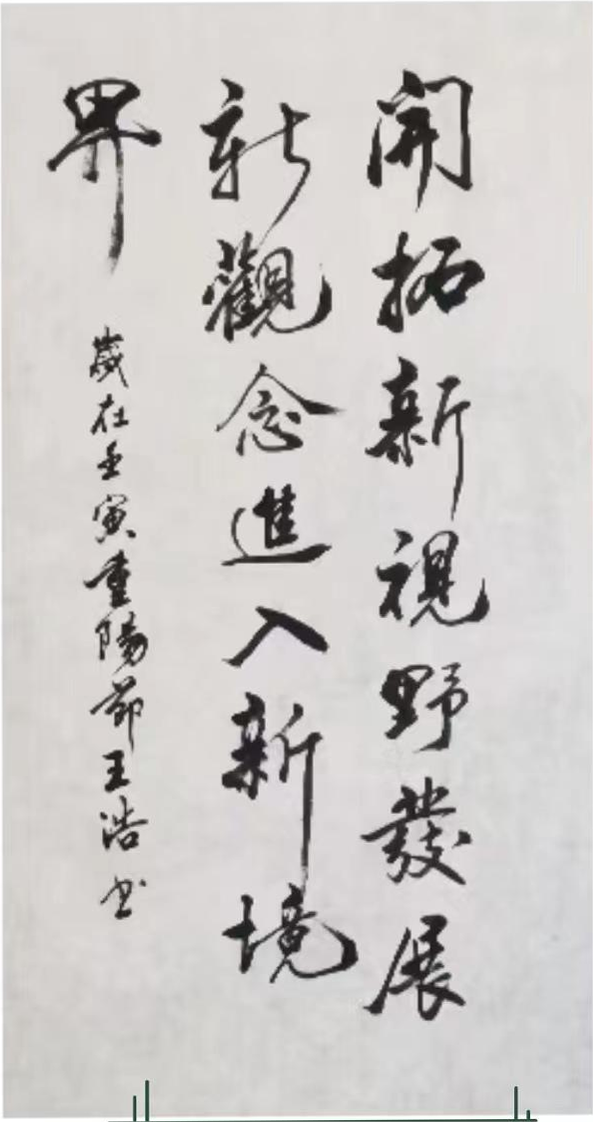 開拓新視野發展
新觀念進入新境
界
歲在壬寅重陽節王浩書